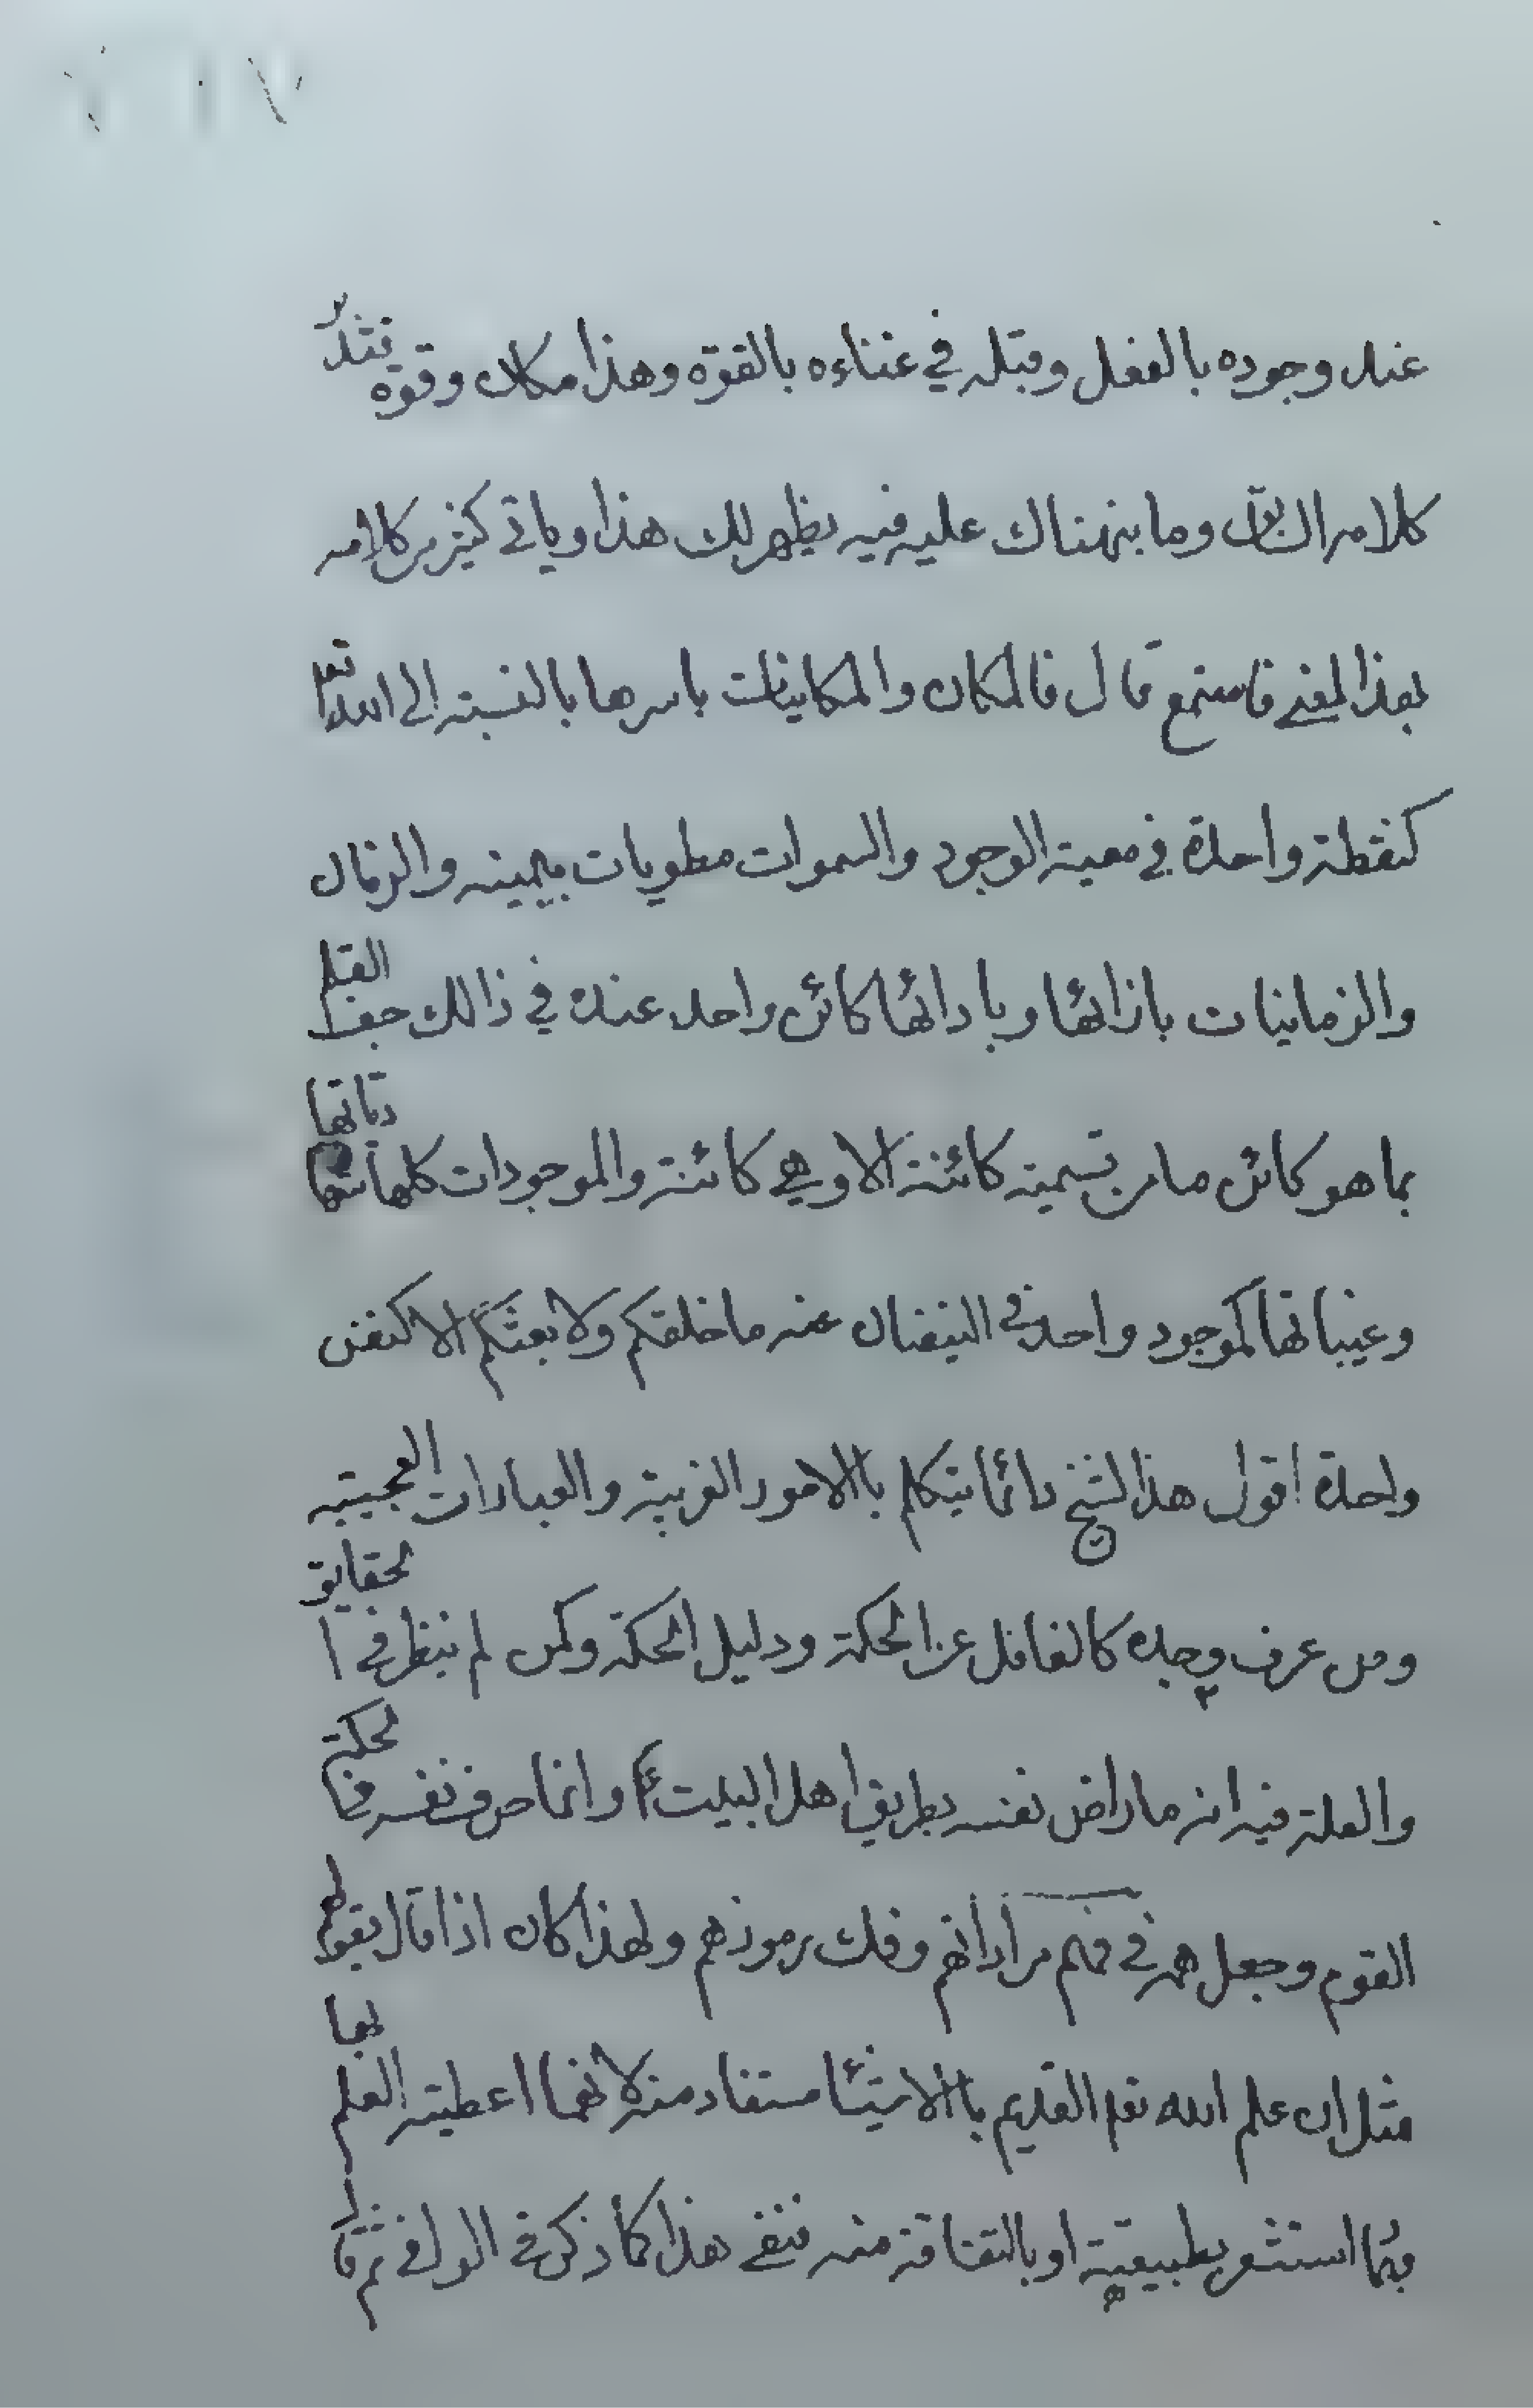 عنده وجوده بالفعل وقبله في غناءه بالقوة وهذا مكان وقوة فتدبر
كلامه وما نبهناك عليه فيه يظهر لك هذا وياتي كثير من كلامه
بهذا المعنى فاستمع قال فالمكان والمكانيات باسرها بالنسبة الى الله تعا
كنقطة واحدة في معية الوجود والسموات مطويات بيمينه والزمان
والزمانيات بازالها وبادائها كائن واحد عنده في ذالك جف القلم
بما هو كائن ما من نسمة كائنة الا وهي كائنة والموجودات كلها شهادياتها
وغيباتها كموجود واحد في الفيضان عنه ما خلقكم ولا بعثكم الا كنفس
واحدة اقول هذا الشيخ دائما يتكلم بالامور الغريبة والعبارات العجيبة
ومن عرف وجده كالغافل عن الحكمة ودليل الحكمة وكمن لم ينظر في الحقايق
والعلة فيه انه ما راض نفسه بطريق اهل البيت ع وانما صرف نفسه في حكمة
القوم وجعل همه في فهم مراداتهم وفك رموزهم ولهذا كان اذا قال بقولهم
مثل ان علم الله تعا القديم بالاشيئا مستفاد منه لانها اعطيته العلم بها
ربما استشعر بطبيعته او بالتفاقة منه فنفى هذا كما ذكر في الوافي ثم قال